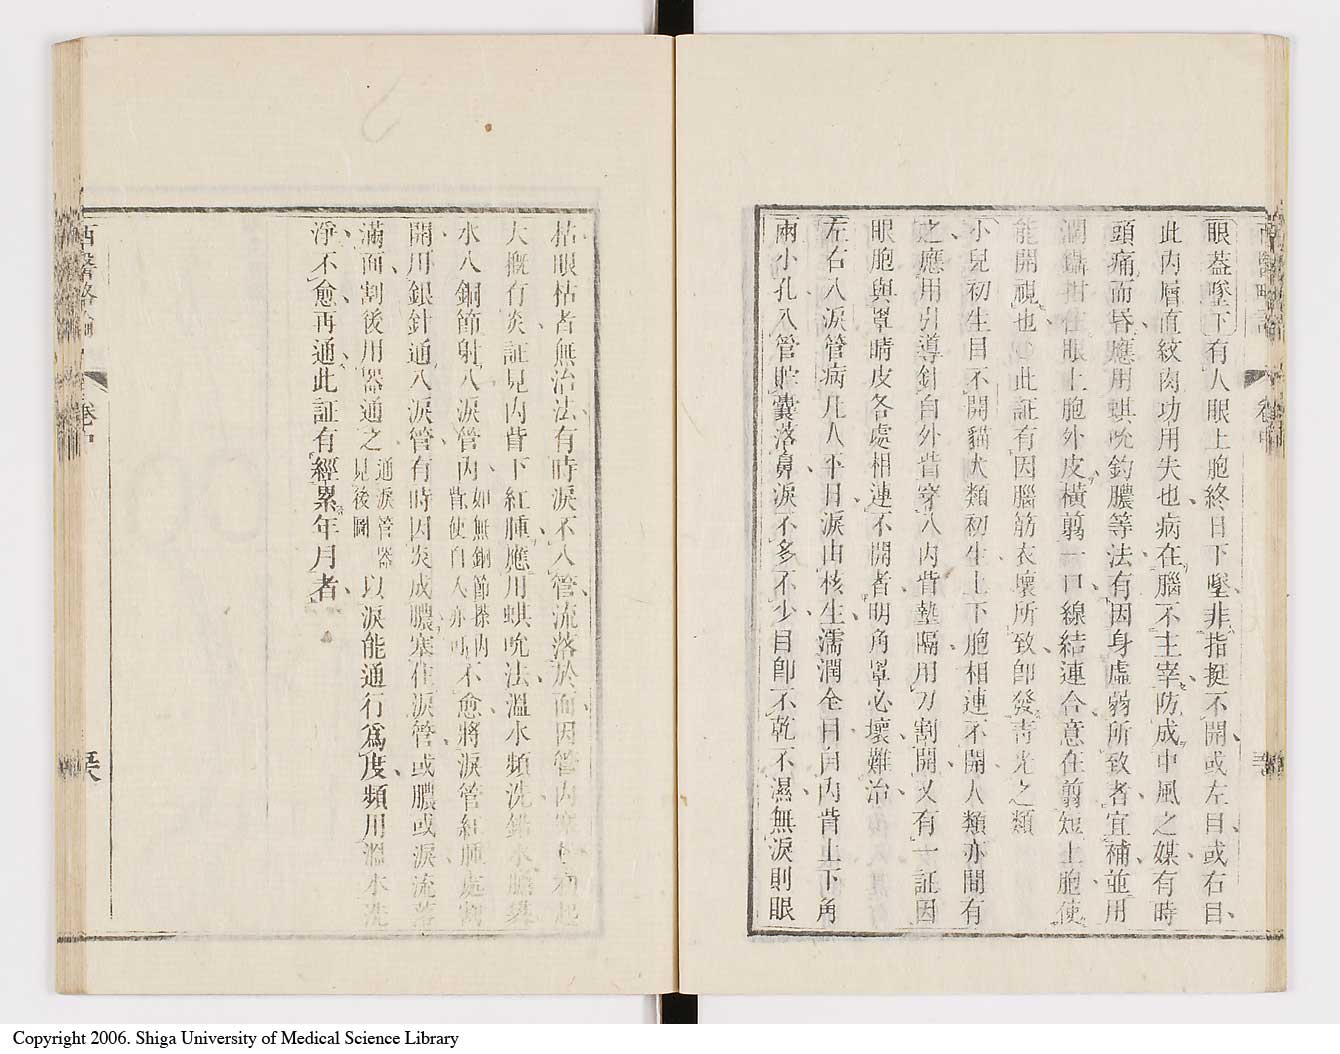 眼葢墜下有人眼上胞終日下墜非指挺不開或左目或右目
此內層直紋肉功用失也病在腦不主宰防成中風之媒有時
頭痛而昏應用蜞吮釣膿等法有因身虛弱所致者宜補並用
濶鑷拑住眼上胞外皮橫剪一口線結連合意在剪短上胞使
能開視也○此証有因腦筋衣壞所致卽發靑光之類
小兒初生目不開貓犬類初生上下胞相連不開人類亦間有
之應用引導針自外眥穿入內眥墊隔用刀割開又有一証因
眼胞與罩睛皮各處相連不開者明角罩必壞難治
左右入淚管病凡人平日淚由核生濡潤全目自內眥上下角
兩小孔入管貯囊落鼻淚不多不少目卽不乾不濕無淚則眼
枯眼枯者無治法有時淚不入管流落於面因管內塞也初起
大概有炎証見內眥下紅腫應用蜞吮法溫水頻洗錯水膽礬
水入銅節射入淚管內如無銅節搽內眥使自入亦可不愈將淚管紅腫處割
開用銀針通入淚管有時因炎成膿塞住淚管或膿或淚流落
滿面割後用器通之通淚管器見後圖以淚能通行爲度頻用溫水洗
淨不愈再通此証有經累年月者
西醫略論
卷中
西醫略論
卷中
Copyright 2006. Shiga University of Medical Science Library